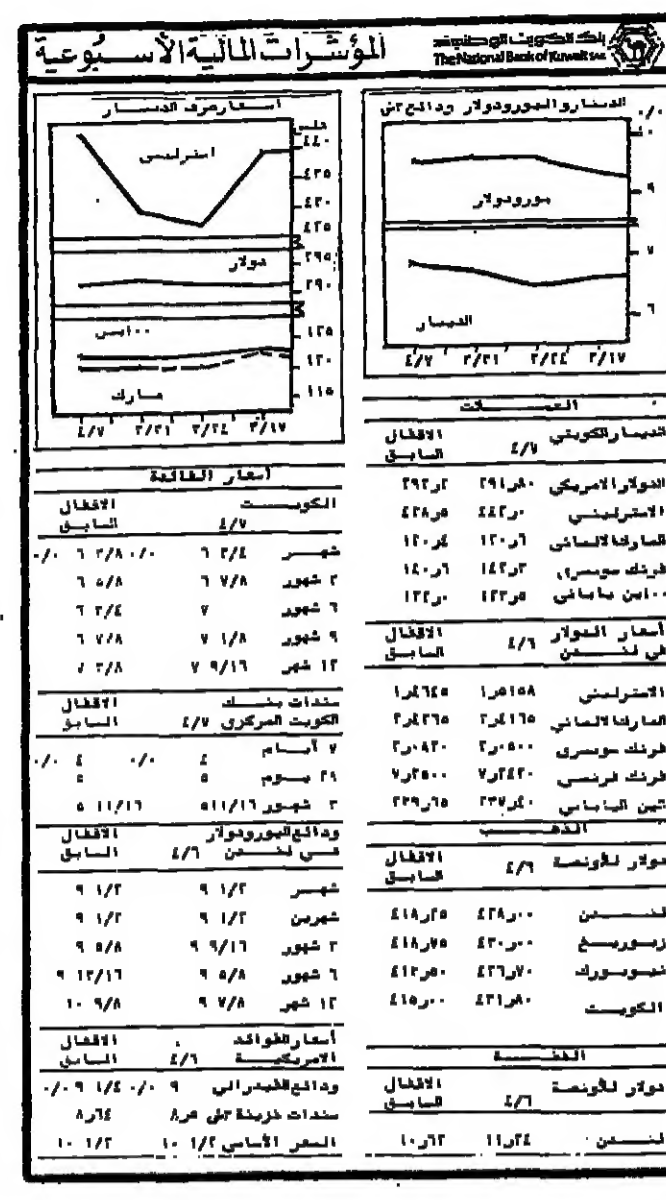 المؤشرات المالية الأسبوعية
بنك الكويت الوطني ش.م.ك
The National Bank of Kuwait SAK
الدينار واليورودولار ودائع ٣ ش
٠/٠
١٠
٩
٧
٦
يورودولار
الدينار
٤/٧ ٣/٣١ ٣/٢٤ ٣/١٧
العمـــلات
الدينار الكويتي ٤/٧ الاقفال السابق
الدولار الامريكي ٢٩١٫٨٠ ٢٩٢٫٢
الاسترليني ٤٤٢٫٠ ٤٢٨٫٥
المارك الالماني ١٢٠٫٦ ١٢٠٫٤
فرنك سويسري ١٤٢٫٣ ١٤٠٫٦
١٠٠ ين ياباني ١٢٣٫٥ ١٢٢٫٠
أسعار الدولار في لنـــدن ٤/٦ الاقفال السابق
الاسترليني ١٫٥١٥٨ ١٫٤٦٤٥
المارك الالماني ٢٫٤١٦٥ ٢٫٤٢٦٥
فرنك سويسري ٢٫٠٥٠٠ ٢٫٠٨٢٠
فرنك فرنسي ٧٫٢٤٢٠ ٧٫٢٥٠٠
الين الياباني ٢٣٧٫٤٠ ٢٣٩٫٦٥
الذهـــب
دولار للأونصة ٤/٦ الاقفال السابق
لنـــدن ٤٢٨٫٠٠ ٤١٨٫٢٥
زيوريـــخ ٤٣٠٫٠٠ ٤١٨٫٧٥
نيويورك ٤٢٦٫٧٠ ٤١٢٫٥٠
الكويـــت ٤٣١٫٨٠ ٤١٥٫٠٠
الفضـــة
دولار للأونصة ٤/٦ الاقفال السابق
لنـــدن ١١٫٢٤ ١٠٫٦٢
أسعار صرف الدينـــار
فلس
٤٤٠
٤٣٥
٤٣٠
٤٢٥
٢٩٥
٢٩٠
١٢٥
١٢٠
١١٥
استرليني
دولار
١٠٠ ين
مارك
٤/٧ ٣/٣١ ٣/٢٤ ٣/١٧
أسعار الفائدة
الكويـــت ٤/٧ الاقفال السابق
شهـــر ٦ ٣/٤ ٠/٠ ٦ ٣/٨ ٠/٠
٣ شهور ٦ ٧/٨ ٦ ٥/٨
٦ شهور ٧ ٦ ٣/٤
٩ شهور ٧ ١/٨ ٦ ٧/٨
١٢ شهر ٧ ٩/١٦ ٧ ٣/٨
سندات بنـــك الكويت المركزي ٤/٧ الاقفال السابق
٧ أيـــام ٤ ٠/٠ ٤ ٠/٠
٢١ يـــوم ٥ ٥
٣ شهور ٥ ١١/١٦ ٥ ١١/١٦
ودائع اليورودولار فـــي لنـــدن ٤/٦ الاقفال السابق
شهـــر ٩ ١/٢ ٩ ١/٢
شهرين ٩ ١/٢ ٩ ١/٢
٣ شهور ٩ ٩/١٦ ٩ ٥/٨
٦ شهور ٩ ٥/٨ ٩ ١٣/١٦
١٢ شهر ٩ ٧/٨ ١٠ ٩/٨
أسعار الفوائد الامريكيـــة ٤/٦ الاقفال السابق
ودائع الفيدرالي ٩ ٠/٠ ٩ ١/٤ ٠/٠
سندات خزينة ٣ ش ٨٫٥ ٨٫٦٤
السعر الأساسي ١٠ ١/٢ ١٠ ١/٢